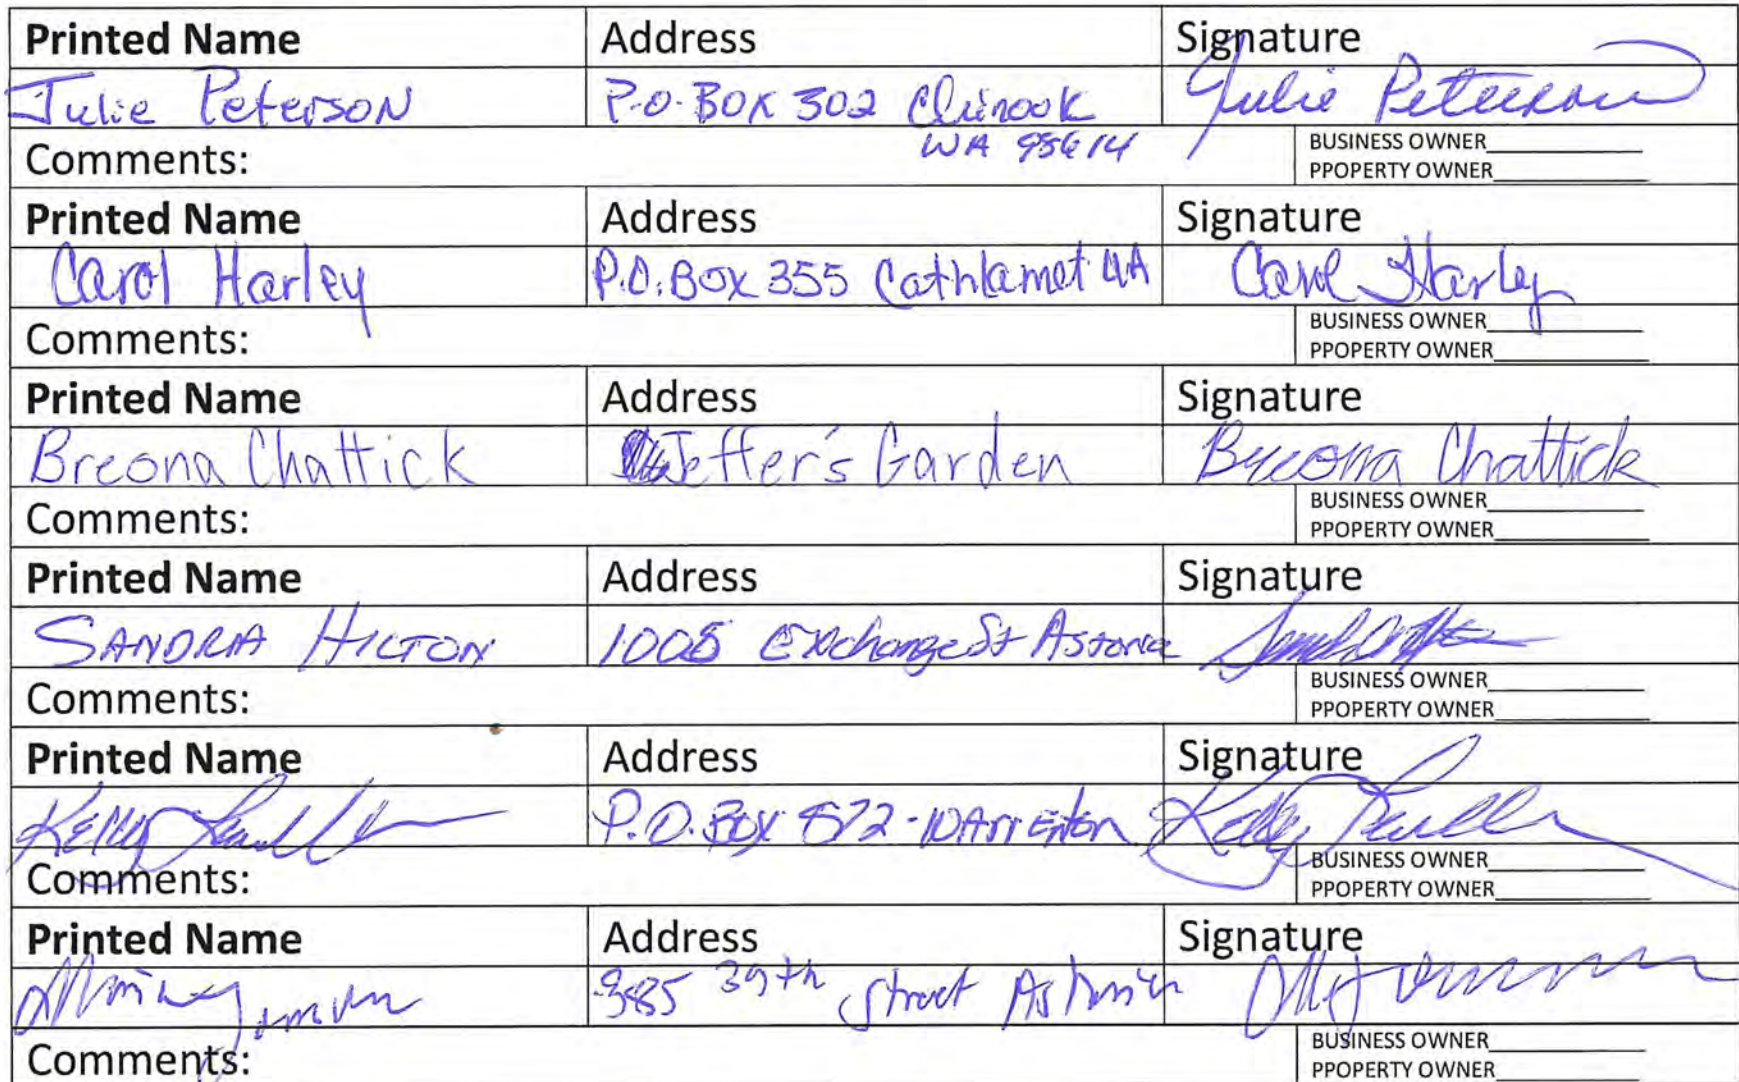 Printed Name Address Signature
Julie Peterson P.O. BOX 302 Chinook Julie Peterson
WA 98614
Comments: BUSINESS OWNER
PPOPERTY OWNER
Printed Name Address Signature
Carol Harley P.O. Box 355 Cathlamet WA Carol Harley
Comments: BUSINESS OWNER
PPOPERTY OWNER
Printed Name Address Signature
Breona Chattick Jeffer's Garden Breona Chattick
Comments: BUSINESS OWNER
PPOPERTY OWNER
Printed Name Address Signature
SANDRA HILTON 1005 Exchange St Astoria
Comments: BUSINESS OWNER
PPOPERTY OWNER
Printed Name Address Signature
Kelly P.O. BOX 572 - WArrEnton Kelly
Comments: BUSINESS OWNER
PPOPERTY OWNER
Printed Name Address Signature
385 39th Street Astoria
Comments: BUSINESS OWNER
PPOPERTY OWNER